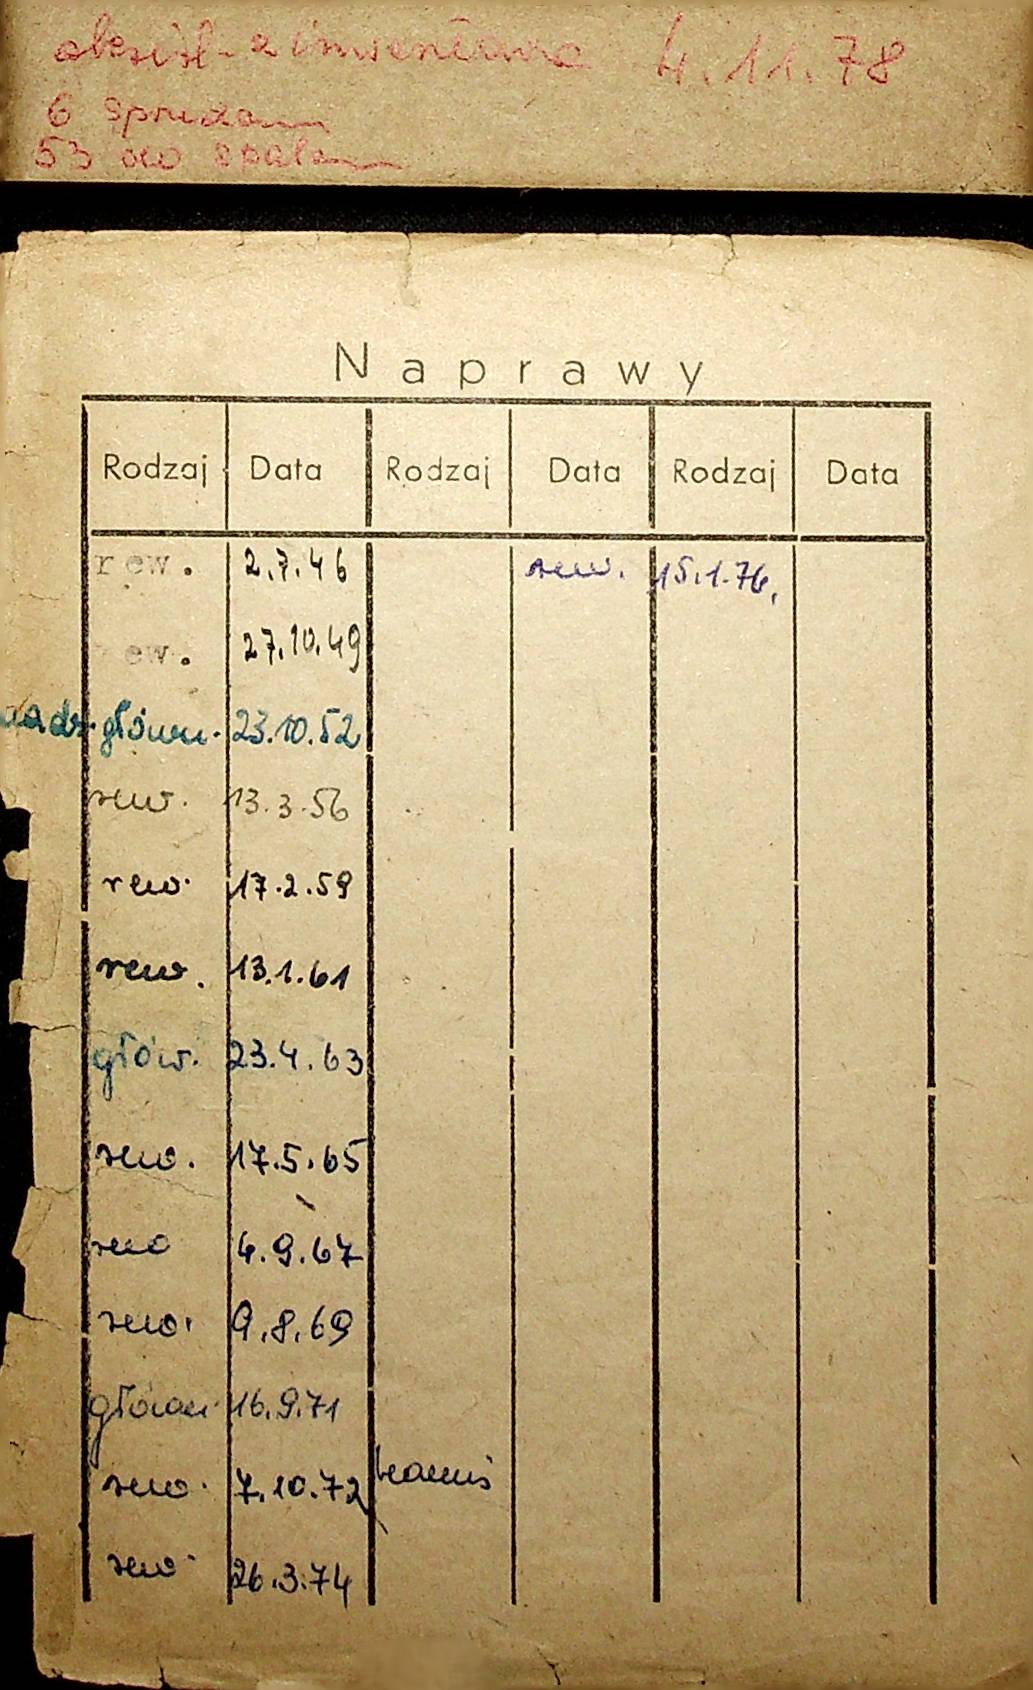 4.11.78
6
53 do
Naprawy
Rodzaj Data Rodzaj Data Rodzaj Data
rew. 2.7.46 rew. 15.1.76.
ew. 27.10.49
główn. 23.10.52
rew. 13.3.56
rew. 17.2.59
rew. 13.1.61
głów. 23.4.63
rew. 17.5.65
rew 4.9.67
rew. 9.8.69
główn. 16.9.71
rew. 7.10.72
rew. 26.3.74